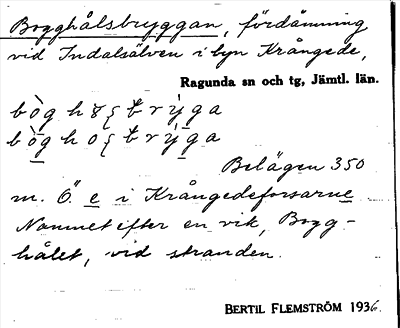 Bogghålsbryggan, fördämning
vid Indalsälven i byn Krångede,
Ragunda sn och tg, Jämtl. län.
Belägen 350
m. Ö. e i Krångedeforsarne
Namnet efter en vik, Bogg-
hålet, vid stranden.
BERTIL FLEMSTRÖM 1936.